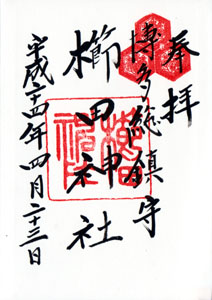 奉拝
博多總鎮守
櫛田神社
平成二十四年四月二十三日